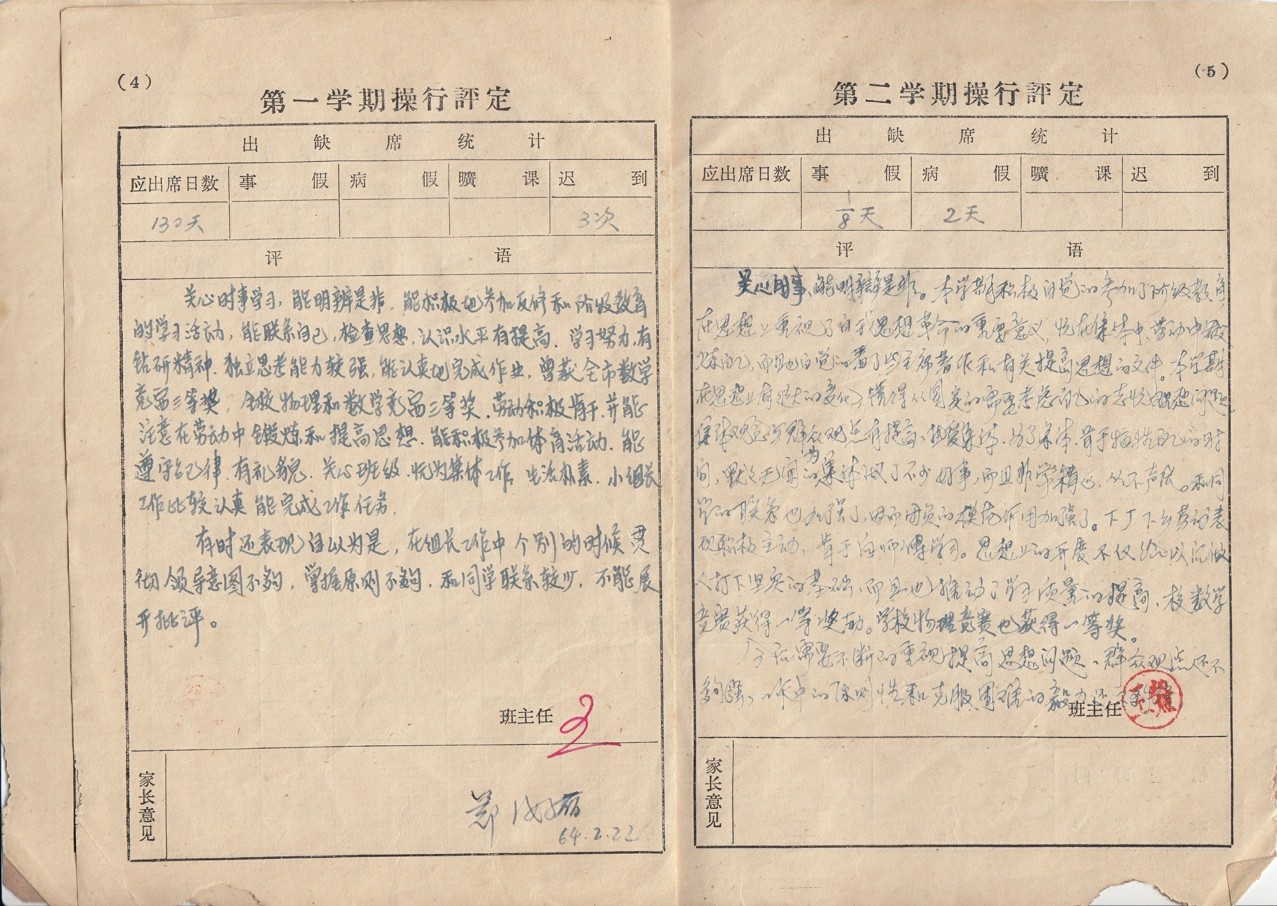 (4)
第一学期操行評定
出 缺 席 统 计
应出席日数 事假 病假 曠课 迟到
130天 3次
评 语
关心时事学习，能明辨是非，能积极地参加反修和阶级教育
的学习活动，能联系自己，检查思想，认识水平有提高。学习努力，有
钻研精神，独立思考能力较强，能认真地完成作业，曾获全市数学
竞赛三等奖，全校物理和数学竞赛三等奖，劳动积极肯干，并能
注意在劳动中锻炼和提高思想，能积极参加体育活动，能
遵守纪律，有礼貌，关心班级，忱为集体工作，生活朴素，小组长
工作比较认真，能完成工作任务。
有时还表现自以为是，在组长工作中个别的时候贯
彻领导意图不夠，掌握原则不夠，和同学联系较少，不能展
开批评。
班主任
家长意见
郑
64.2.22
(5)
第二学期操行評定
出 缺 席 统 计
应出席日数 事假 病假 曠课 迟到
1/8天 2天
评 语
关心时事、能明辨是非。本学期积极自觉的参加了阶级教育
在思想上重视了自我思想革命的重要意义，忱在集体中劳动中锻
炼自己，而且自觉的看了些主席著作和有关提高思想的文件。本学期
在思想上有很大的变化，懂得从国家的需要考虑自己的志忱理想问题
集体观念，群众观点有提高，热爱集体，为了集体，肯于牺牲自己的时
间，默默无闻的为集体做了不少好事，而且非常，从不声张。和同
学的联系也加强了，因而团员的模范作用加强了。下厂下乡劳动表
现积极主动，肯于向师傅学习。思想上的开展不仅给以后做
人打下坚实的基础，而且也推动了学习质量的提高，校数学
竞赛获得一等奖励。学校物理竞赛也获得一等奖。
今后需要不断的重视提高思想问题，群众观点还不
夠强，工作中的原则性和克服困难的毅力还
班主任
家长意见